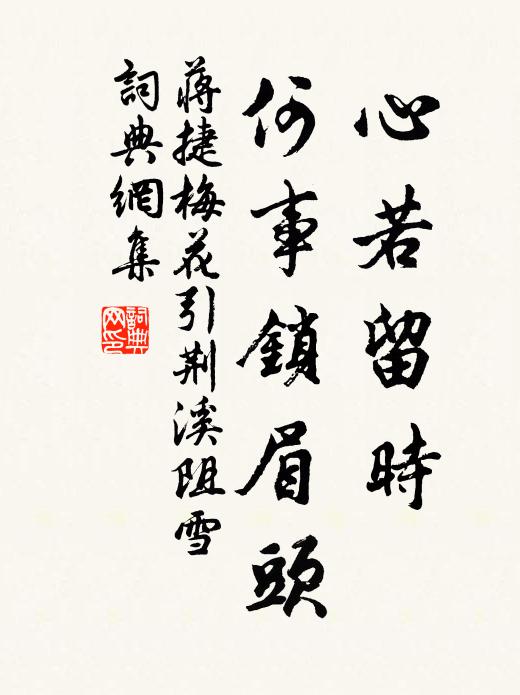 心若留時
何事鎖眉頭
蔣捷梅花引荆溪阻雪
詞典網集
詞典网印